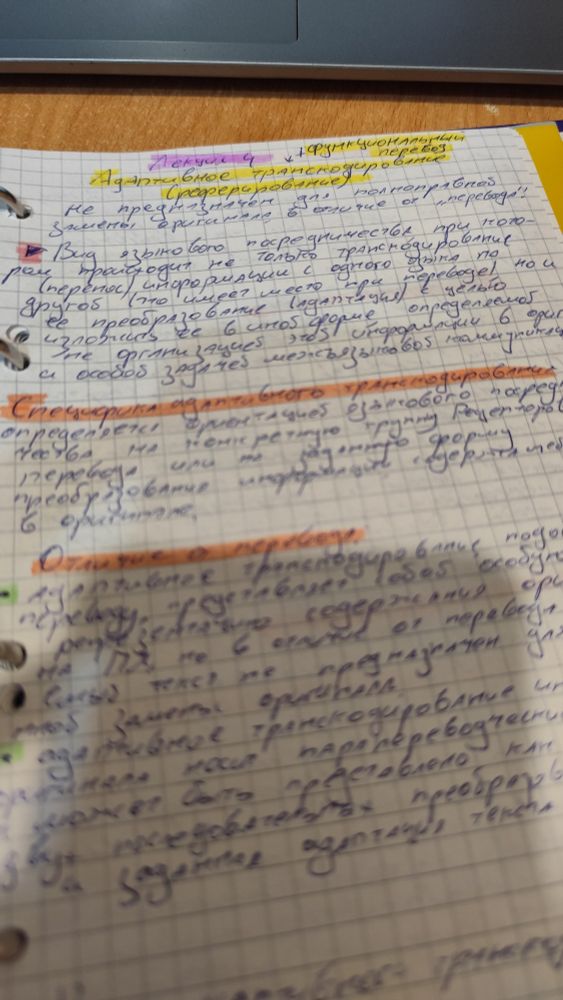 Лекция 4 ↓ + функциональный
перевод
Адаптивное транскодирование
(реферирование)
Не предназначен для полноправной
замены оригинала в отличие от "перевода"!!
Вид языкового посредничества при кото-
ром происходит не только транскодирование
(перенос) информации с одного языка на
другой (что имеет место при переводе) но и
её преобразование (адаптация) с целью
изложить её в иной форме определяемой
не организацией этой информации в ориг
а особой задачей межъязыковой коммуникац
Специфика адаптивного транскодирования
определяется ориентацией языкового посредн
чества на конкретную группу Рецепторов
перевода или на заданную форму
преобразования информации содержащей
в оригинале.
Отличие от перевода
- адаптивное транскодирование подо
переводу, представляет собой особую
репрезентацию содержания ори
на ПЯ, но в отличие от перевода
текст не предназначен для
ной замены оригинала.
- адаптивное транскодирование
оригинала носит парапереводческий
может быть представлено как
двух последовательных преобразов
и заданная адаптация текста